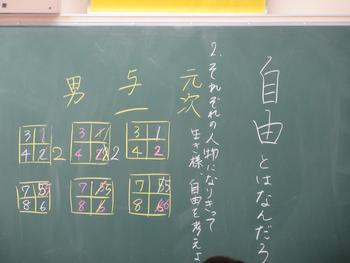 自由とはなんだろ
2.それぞれの人物になりきって
生き様、自由を考えよ
元次
与一
男
3 1
4 2
3
4 2 2
3
4 2 2
7 5
8 6
7 5
8 6
7 5
8 6